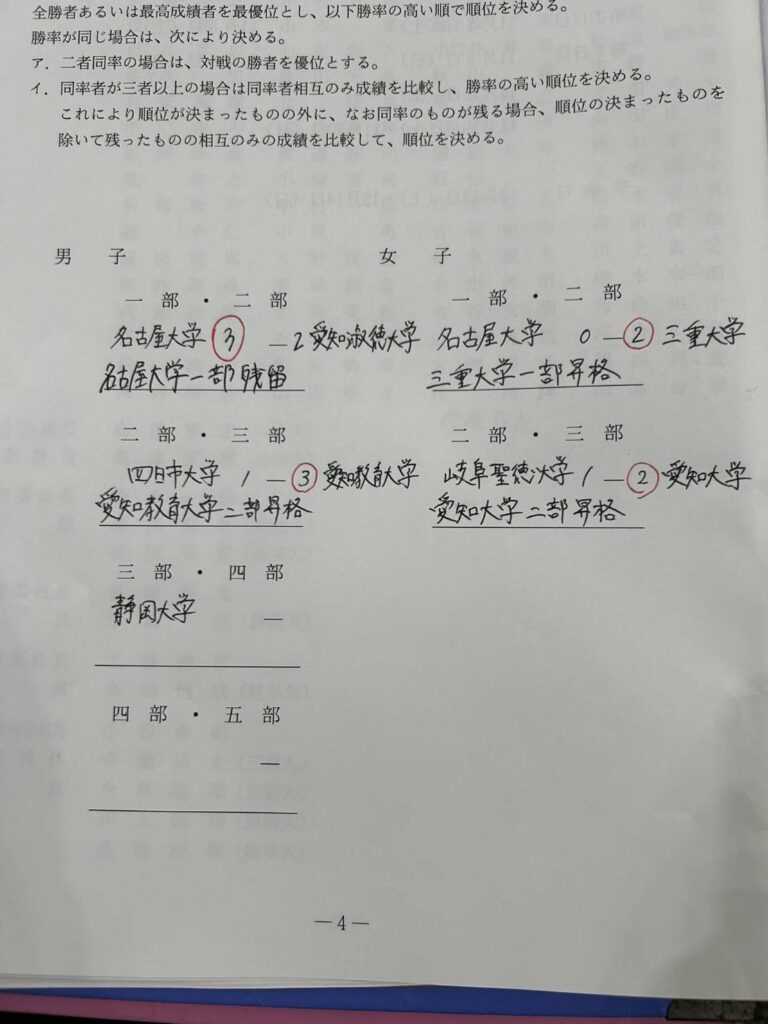 全勝者あるいは最高成績者を最優位とし、以下勝率の高い順で順位を決める。
勝率が同じ場合は、次により決める。
ア．二者同率の場合は、対戦の勝者を優位とする。
イ．同率者が三者以上の場合は同率者相互のみ成績を比較し、勝率の高い順位を決める。
これにより順位が決まったものの外に、なお同率のものが残る場合、順位の決まったものを
除いて残ったものの相互のみの成績を比較して、順位を決める。
男子
一部・二部
名古屋大学 3 — 2 愛知淑徳大学
名古屋大学一部残留
二部・三部
四日市大学 1 — 3 愛知教育大学
愛知教育大学二部昇格
三部・四部
静岡大学 —
四部・五部
—
女子
一部・二部
名古屋大学 0 — 2 三重大学
三重大学一部昇格
二部・三部
岐阜聖徳大学 1 — 2 愛知大学
愛知大学二部昇格
— 4 —